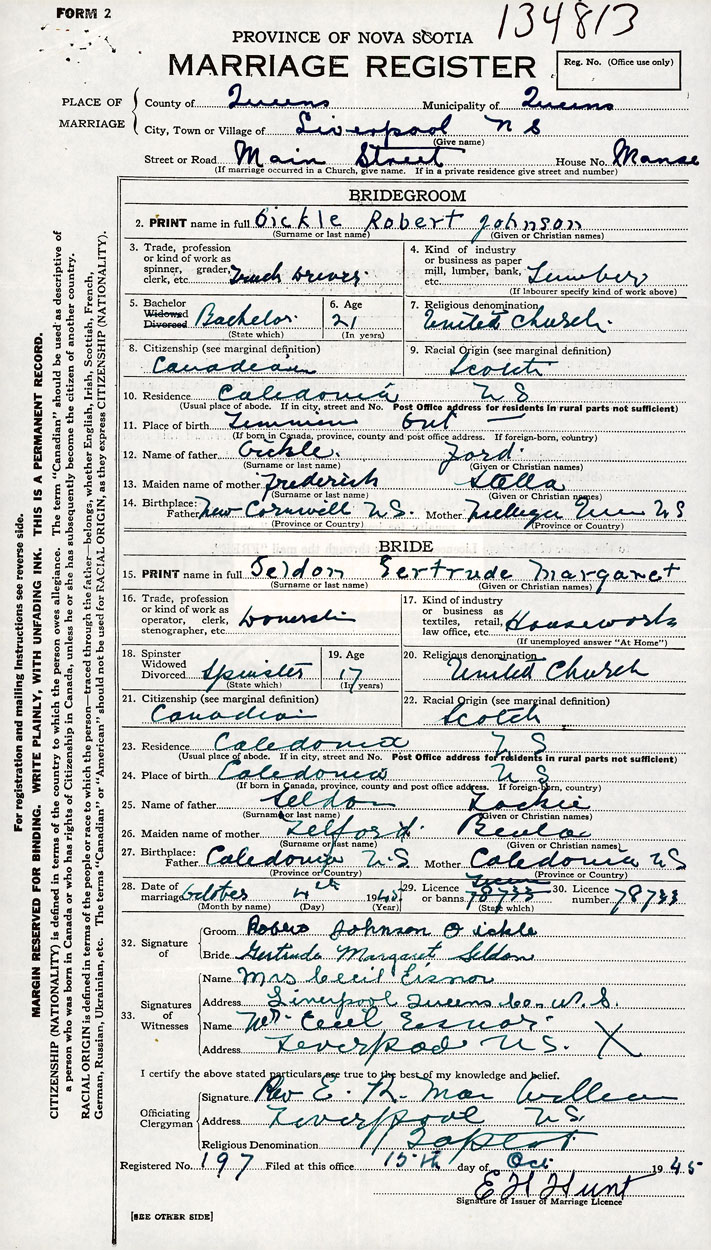 FORM 2
134813
PROVINCE OF NOVA SCOTIA
MARRIAGE REGISTER
Reg. No. (Office use only)
PLACE OF MARRIAGE
County of Queens Municipality of Queens
City, Town or Village of Liverpool N S
(Give name)
Street or Road Main Street House No. Manse
(If marriage occurred in a Church, give name. If in a private residence give street and number)
BRIDEGROOM
2. PRINT name in full Oickle Robert Johnson
(Surname or last name) (Given or Christian names)
3. Trade, profession or kind of work as spinner, grader, clerk, etc. Truck Driver
4. Kind of industry or business as paper mill, lumber, bank, etc. Lumber
(If labourer specify kind of work above)
5. Bachelor Widowed Divorced Bachelor
(State which)
6. Age 21
(In years)
7. Religious denomination United Church
8. Citizenship (see marginal definition) Canadian
9. Racial Origin (see marginal definition) Scotch
10. Residence Caledonia N S
(Usual place of abode. If in city, street and No. Post Office address for residents in rural parts not sufficient)
11. Place of birth Ont
(If born in Canada, province, county and post office address. If foreign-born, country)
12. Name of father Oickle Ford
(Surname or last name) (Given or Christian names)
13. Maiden name of mother Frederick Stella
(Surname or last name) (Given or Christian names)
14. Birthplace: Father New Cornwell N.S. Mother N S
(Province or Country) (Province or Country)
BRIDE
15. PRINT name in full Seldon Gertrude Margaret
(Surname or last name) (Given or Christian names)
16. Trade, profession or kind of work as operator, clerk, stenographer, etc. Domestic
17. Kind of industry or business as textiles, retail, law office, etc. Housework
(If unemployed answer "At Home")
18. Spinster Widowed Divorced Spinster
(State which)
19. Age 17
(In years)
20. Religious denomination United Church
21. Citizenship (see marginal definition) Canadian
22. Racial Origin (see marginal definition) Scotch
23. Residence Caledonia N S
(Usual place of abode. If in city, street and No. Post Office address for residents in rural parts not sufficient)
24. Place of birth Caledonia N S
(If born in Canada, province, county and post office address. If foreign-born, country)
25. Name of father Seldon Zackie
(Surname or last name) (Given or Christian names)
26. Maiden name of mother Telfort Beula
(Surname or last name) (Given or Christian names)
27. Birthplace: Father Caledonia N.S Mother Caledonia N S
(Province or Country) (Province or Country)
28. Date of marriage October 4th 1945
(Month by name) (Day) (Year)
29. Licence or banns 78733
(State which)
30. Licence number 78733
32. Signature of
Groom Robert Johnson Oickle
Bride Gertrude Margaret Seldon
33. Signatures of Witnesses
Name Mrs Cecil Eisnor
Address Liverpool Queens Co. N.S.
Name Mr. Cecil Eisnor
Address Liverpool N.S. X
I certify the above stated particulars are true to the best of my knowledge and belief.
Officiating Clergyman
Signature Rev E.
Address Liverpool N.S.
Religious Denomination Baptist
Registered No. 197 Filed at this office 15th day of Oct 1945
E H Hunt
Signature of Issuer of Marriage Licence
[SEE OTHER SIDE]
For registration and mailing Instructions see reverse side.
MARGIN RESERVED FOR BINDING. WRITE PLAINLY, WITH UNFADING INK. THIS IS A PERMANENT RECORD.
CITIZENSHIP (NATIONALITY) is defined in terms of the country to which the person owes allegiance. The term "Canadian" should be used as descriptive of
a person who was born in Canada or who has rights of Citizenship in Canada, unless he or she has subsequently become the citizen of another country.
RACIAL ORIGIN is defined in terms of the people or race to which the person—traced through the father—belongs, whether English, Irish, Scottish, French,
German, Russian, Ukrainian, etc. The terms "Canadian" or "American" should not be used for RACIAL ORIGIN, as they express CITIZENSHIP (NATIONALITY).